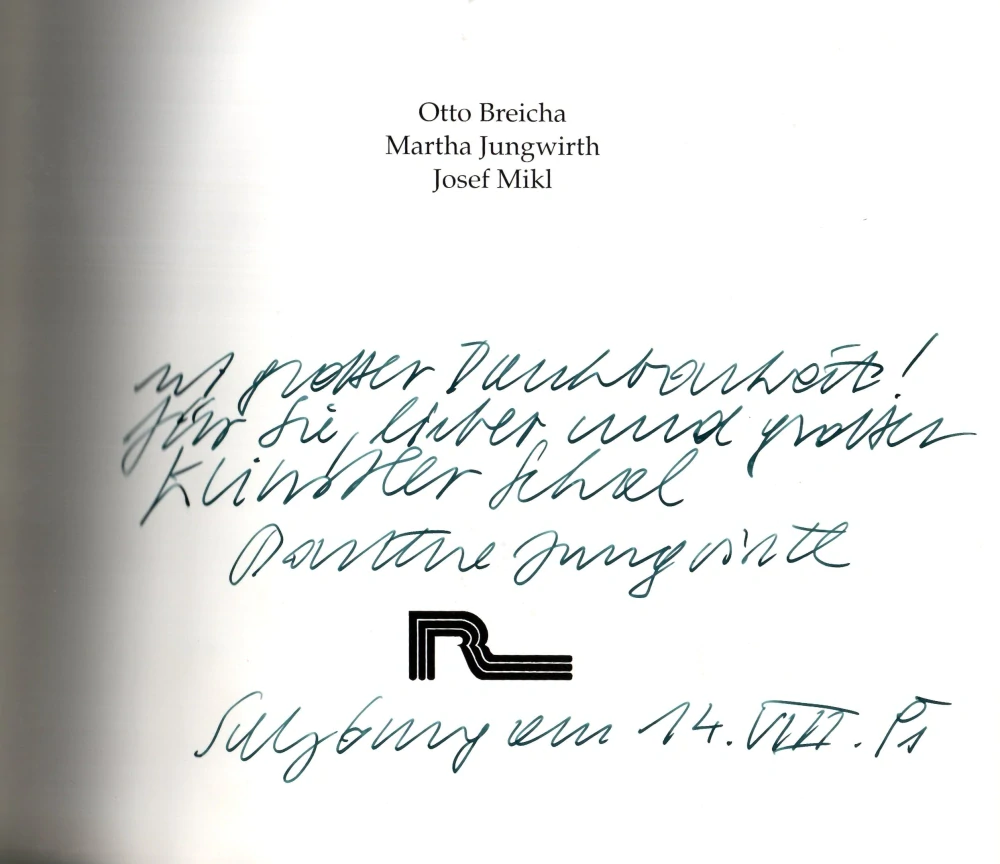 Otto Breicha
Martha Jungwirth
Josef Mikl
großer Dankbarkeit!
für Sie, lieber und großer
Künstler Schal
Martha Jungwirth
Salzburg am 14. VIII. 95